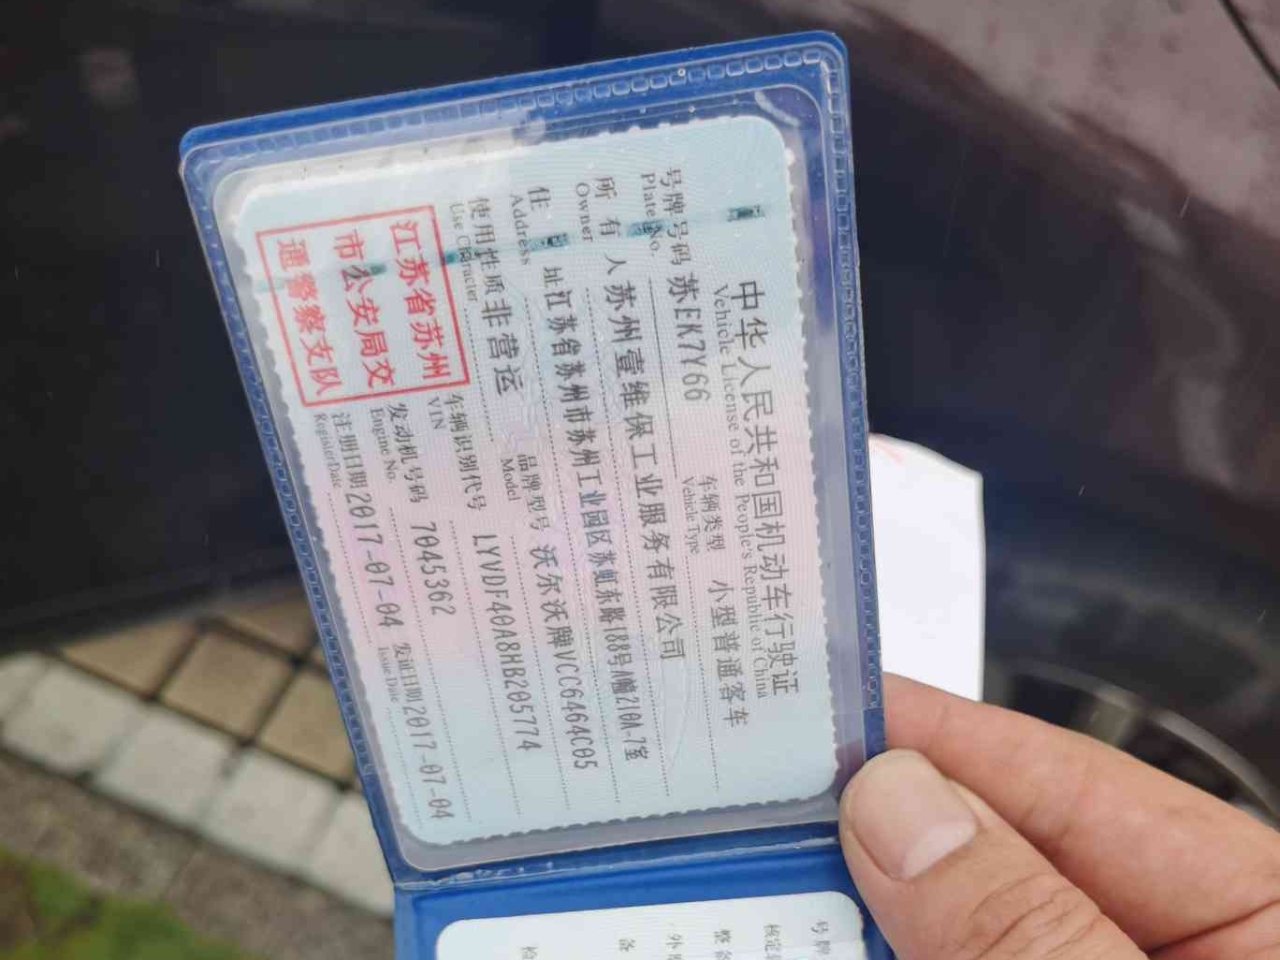 中华人民共和国机动车行驶证
Vehicle License of the People's Republic of China
号牌号码 苏EK7Y66 车辆类型 小型普通客车
Plate No. Vehicle Type
所有人 苏州壹维保工业服务有限公司
Owner
住址 江苏省苏州市苏州工业园区苏虹东路188号A幢210A-7室
Address
使用性质 非营运 品牌型号 沃尔沃牌VCC6464C05
Use Character Model
江苏省苏州
市公安局交
通警察支队
车辆识别代号 LYVDF40A8HB205774
VIN
发动机号码 7045362
Engine No.
注册日期 2017-07-04 发证日期 2017-07-04
Register Date Issue Date
号牌
核定
整备
外
备
检